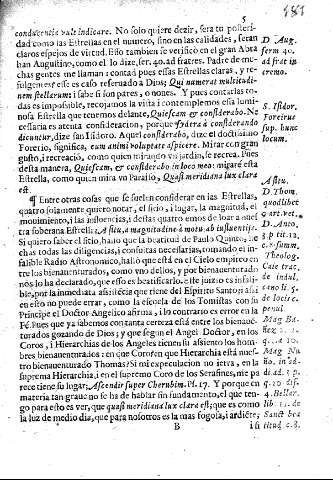 5
conducentia vult indicare. No solo quiere dezir, sera tu posteridad
como las Estrellas en el numero, sino en las calidades, seran
claros espejos de virtud. Esto tambien se verificò en el gran Abraham
Augustino, como el lo dize, ser. 40. ad fratres. Padre de muchas
gentes me llaman: contad pues essas Estrellas claras, y refulgentes
esse es caso reservado à Dios; Qui numerat multitudinem
stellarum: sabe si son pares, o nones. Y pues contarlas todas
es impossible, recojamos la vista i contemplemos essa luminosa
Estrella que tenemos delante, Quiescam, & considerabo. Necessaria
es atenta consideracion, porque sydera à considerando
dicuntur, dize san Isidoro. Aquel considerabo, dize el doctissimo
Forerio, significa, cum animi voluptate aspicere. Mirar con gran
gusto, i recreació, como quien mirando vn jardin, se recrea. Pues
desta manera, Quiescam, & considerabo in loco meo: miraré esta
Estrella, como quien mira vn Paraiso, Quasi meridiana lux clara
est.
¶ Entre otras cosas que se suelen considerar en las Estrellas,
quatro solamente quiero notar, el sitio, i lugar, la magnitud, el
movimiento, i las influencias, i destas quatro emos de loar a nuestra
soberana Estrella: A situ, a magnitudine à motu ab influentijs.
Si quiero saber el sitio, hallo que la beatitud de Paulo Quinto, hechas
todas las diligencias, i consultas necessarias, tomando el infalible
Radio Astronomico, hallò que està en el Cielo empireo entre
los bienaventurados, como vno dellos, y por bienaventurado
nos lo ha declarado, que esso es beatificarlo: este juizio es infalible,
por la inmediata assistécia que tiene del Espiritu Santo; assi
en esto no puede errar, como la escuela de los Tomistas con su
Principe el Doctor Angelico afirma, i lo contrario es error en la
Fé. Pues que ya sabemos con tanta certeza està entre los bienaventurados
gozando de Dios; y que segun el Angel Doctor, en los
Coros, i Hierarchias de los Angeles tienen su assiento los hombres
bienaventurados: en que Coro? en que Hierarchia està nuestro
bienaventurado Thomas? Si mi expeculacion no ierra, en la
suprema Hierarchia, i en el supremo Coro de los Serafines, me parece
tiene su lugar; Ascendit super Cherubim. Ps. 17. Y porque en
materia tan grave no se ha de hablar sin fundamento, el que tengo
para esto es ver, que quasi meridiana lux clara est; que es como
la luz de medio dia, que para nosotros es la mas fogosa, i ardiéte;
B
D. Aug.
serm 40.
ad frat in
eremo.
S. Isidor.
Foreirus
sup. hunc
locum.
A situ.
D. Thom.
quodlibet
D. Anto.
3. p tit 12.
Theolog.
Caie trac.
de indul.
Mag
Mag Nu
4. Bellar.